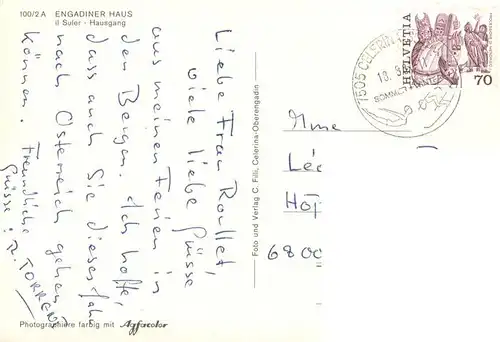 100/2 A ENGADINER HAUS
il Suler - Hausgang
Liebe Frau Roullet,
viele liebe Grüsse
aus meinen Ferien in
den Bergen. Ich hoffe,
dass auch Sie dieses Jahr
nach Österreich gehen
können. Freundliche
Grüsse: R. TORRE
Photographiere farbig mit Agfacolor
Foto und Verlag C. Filli, Celerina-Oberengadin
HELVETIA
70
7505 CELERINA
Mme
Léo
Hôp
6800